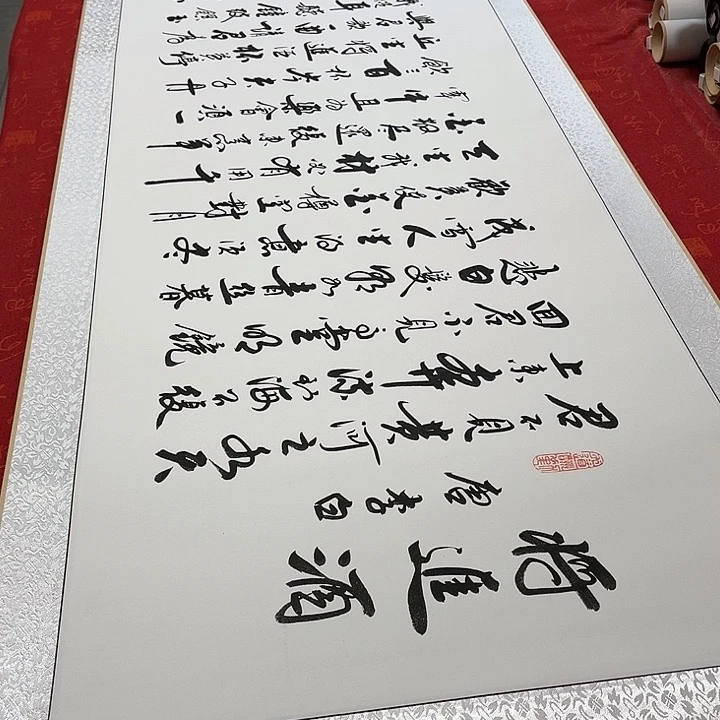 将進酒
唐李白
君不見黄河之水天
上来奔流到海不復
回君不見高堂明鏡
悲白髮朝如青絲暮
成雪人生得意須尽
歡莫使金樽空對月
天生我材必有用千
金散尽還復来烹羊
宰牛且为樂會須一
飲三百杯岑夫子丹
丘生將進酒杯莫停
與君歌一曲請君為